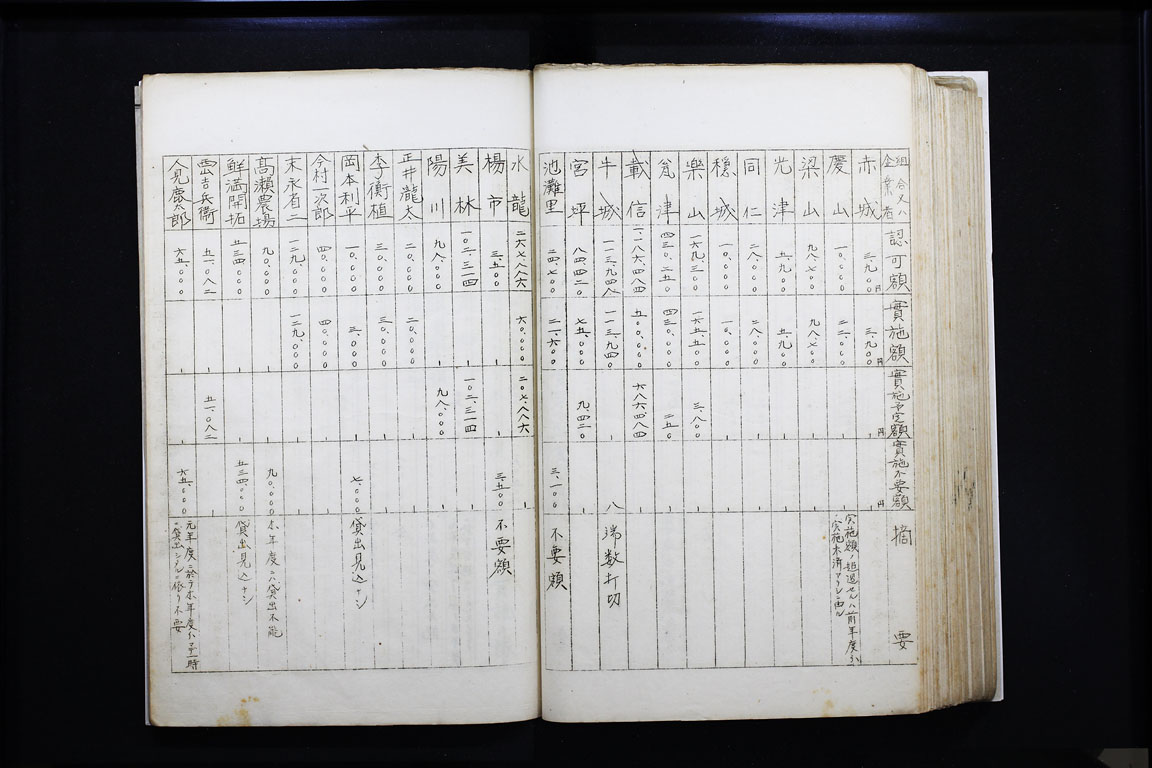 組合又ハ企業者 認可額 實施額 實施予定額 實施不要額 摘要
赤城 三、九〇〇円 三、九〇〇円 円 円
慶山 一〇、〇〇〇 二二、〇〇〇 実施額ノ超過セルハ前年度分ノ実施未済アリシニ由ル
梁山 九八、七〇〇 九八、七〇〇
光津 五、九〇〇 五、九〇〇
同仁 二八、〇〇〇 二八、〇〇〇
穏城 一〇、〇〇〇 一〇、〇〇〇
樂山 一六九、三〇〇 一六五、五〇〇 三、八〇〇
瓮津 四三〇、二五〇 四三〇、〇〇〇 二五〇
載信 一、一八六、四八四 五〇〇、〇〇〇 六八六、四八四
牛城 一一三、九四八 一一三、九四〇 八 端数打切
宮坪 八四、四二〇 七五、〇〇〇 九、四二〇
池灘里 二四、七〇〇 二一、六〇〇 三、一〇〇 不要額
水龍 二六七、八八六 六〇、〇〇〇 二〇七、八八六
楊市 三、五〇〇 三、五〇〇 不要額
美林 一〇二、三一四 一〇二、三一四
陽川 九八、〇〇〇 九八、〇〇〇
正井瀧太 二〇、〇〇〇 二〇、〇〇〇
李衡植 三〇、〇〇〇 三〇、〇〇〇
岡本利平 一〇、〇〇〇 三、〇〇〇 七、〇〇〇 貸出見込ナシ
今村一次郎 四〇、〇〇〇 四〇、〇〇〇
末永省二 一二九、〇〇〇 一二九、〇〇〇
髙瀬農場 九〇、〇〇〇 九〇、〇〇〇 本年度ニハ貸出不能
鮮満開拓 五三四、〇〇〇 五三四、〇〇〇 貸出見込ナシ
雲吉兵衛 五一、〇八二 五一、〇八二
人見慶太郎 六五、〇〇〇 六五、〇〇〇 元年度ニ於テ本年度分マデ一時ニ貸出シタルニ依リ不要